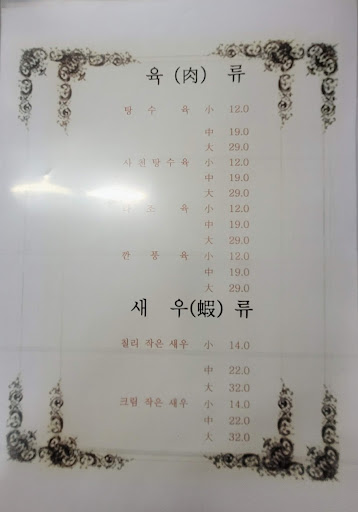 육 (肉) 류
탕 수 육 小 12.0
中 19.0
大 29.0
사천탕수육 小 12.0
中 19.0
大 29.0
조 육 小 12.0
中 19.0
大 29.0
깐 풍 육 小 12.0
中 19.0
大 29.0
새 우(蝦) 류
칠리 작은 새우 小 14.0
中 22.0
大 32.0
크림 작은 새우 小 14.0
中 22.0
大 32.0